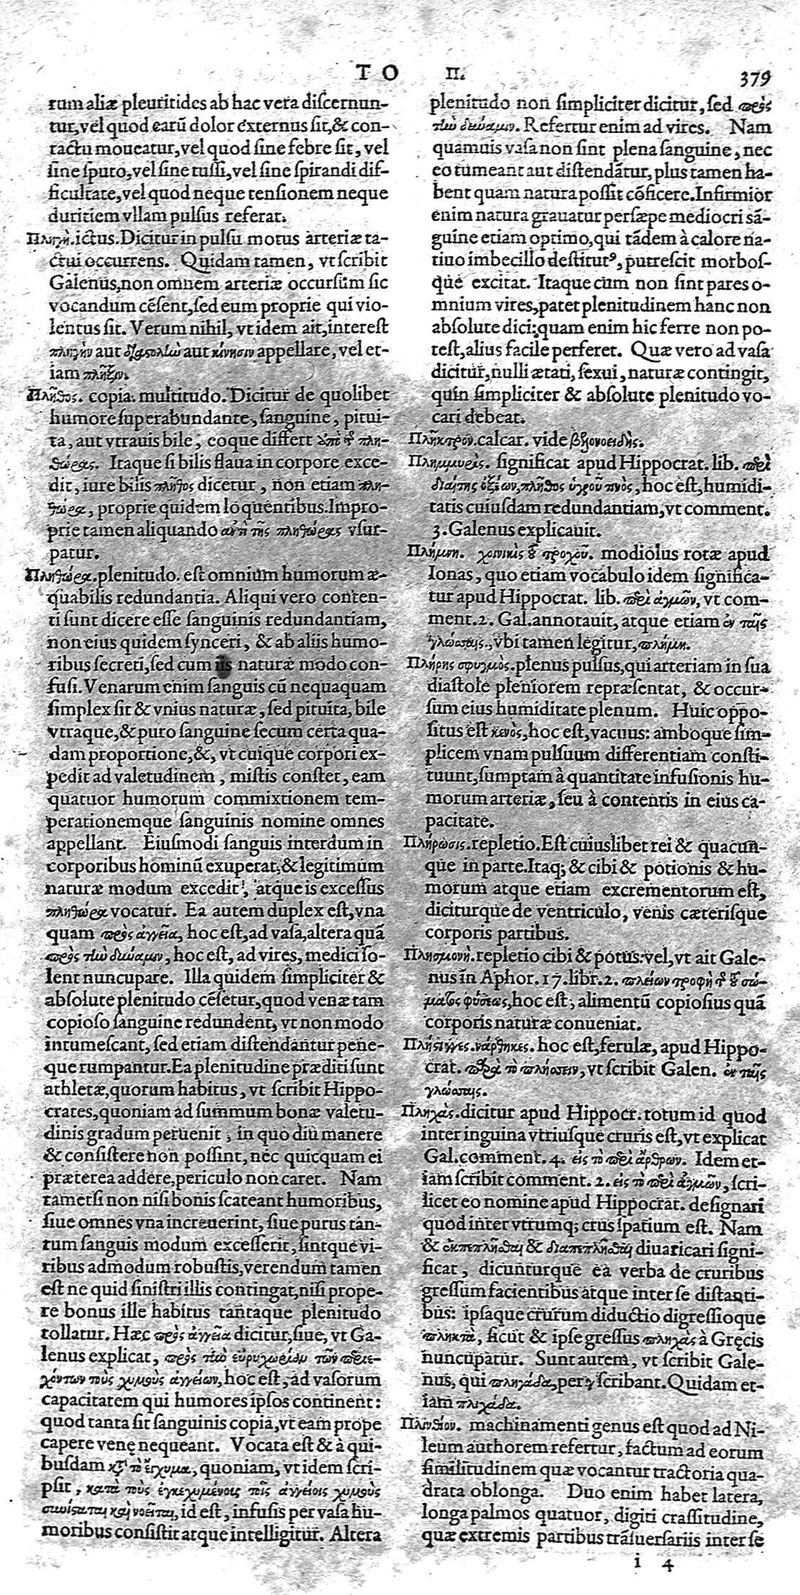 T O Π. 379
rum aliæ pleuritides ab hac vera discernun-
tur, vel quod earũ dolor externus sit, & con-
tractu moueatur, vel quod sine febre sit, vel
sine sputo, vel sine tussi, vel sine spirandi dif-
ficultate, vel quod neque tensionem neque
duritiem vllam pulsus referat.
Πληγὴ. ictus. Dicitur in pulsu motus arteriæ ta-
ctui occurrens. Quidam tamen, vt scribit
Galenus, non omnem arteriæ occursũm sic
vocandum cẽsent, sed eum proprie qui vio-
lentus sit. Verum nihil, vt idem ait, interest
πληγὴν aut διαστολὴν aut κίνησιν appellare, vel et-
iam πλῆξιν.
Πλῆθος. copia. multitudo. Dicitur de quolibet
humore superabundante, sanguine, pitui-
ta, aut vtrauis bile, eoque differt ὑπὸ τῆ πλη-
θώρας. Itaque si bilis flaua in corpore exce-
dit, iure bilis πλῆθος dicetur, non etiam πλη-
θώρα, proprie quidem loquentibus. Impro-
prie tamen aliquando ἀντὶ τῆς πληθώρας vsur-
patur.
Πληθώρα. plenitudo. est omnium humorum æ-
quabilis redundantia. Aliqui vero conten-
ti sunt dicere esse sanguinis redundantiam,
non eius quidem synceri, & ab aliis humo-
ribus secreti, sed cum iis naturæ modo con-
fusi. Venarum enim sanguis cũ nequaquam
simplex sit & vnius naturæ, sed pituita, bile
vtraque, & puro sanguine secum certa qua-
dam proportione, &, vt cuique corpori ex-
pedit ad valetudinem, mistis constet, eam
quatuor humorum commixtionem tem-
perationemque sanguinis nomine omnes
appellant. Eiusmodi sanguis interdum in
corporibus hominũ exuperat, & legitimum
naturæ modum excedit, atque is excessus
πληθώρα vocatur. Ea autem duplex est, vna
quam πρὸς ἀγγεῖα, hoc est, ad vasa, altera quã
πρὸς τὴν δύναμιν, hoc est, ad vires, medici so-
lent nuncupare. Illa quidem simpliciter &
absolute plenitudo cẽsetur, quod venæ tam
copioso sanguine redundent, vt non modo
intumescant, sed etiam distendantur pene-
que rumpantur. Ea plenitudine præditi sunt
athletæ, quorum habitus, vt scribit Hippo-
crates, quoniam ad summum bonæ valetu-
dinis gradum peruenit, in quo diu manere
& consistere non possint, nec quicquam ei
præterea addere, periculo non caret. Nam
tametsi non nisi bonis scateant humoribus,
siue omnes vna increuerint, siue purus tan-
tum sanguis modum excesserit, sintque vi-
ribus admodum robustis, verendum tamen
est ne quid sinistri illis contingat, nisi prope-
re bonus ille habitus tantaque plenitudo
tollatur. Hæc πρὸς ἀγγεῖα dicitur, siue, vt Ga-
lenus explicat, πρὸς τὴν εὐρυχωρίαν τῶν περιε-
χόντων τοὺς χυμοὺς ἀγγείων, hoc est, ad vasorum
capacitatem qui humores ipsos continent:
quod tanta sit sanguinis copia, vt eam prope
capere venę nequeant. Vocata est & à qui-
busdam κατὰ τὸ ἔγχυμα, quoniam, vt idem scri-
psit, κατὰ τοὺς ἐγκεχυμένους τοῖς ἀγγείοις χυμοὺς
συνίσταται καὶ νοεῖται, id est, infusis per vasa hu-
moribus consistit atque intelligitur. Altera
plenitudo non simpliciter dicitur, sed πρὸς
τὴν δύναμιν. Refertur enim ad vires. Nam
quamuis vasa non sint plena sanguine, nec
eo tumeant aut distendãtur, plus tamen ha-
bent quam natura possit cõficere. Infirmior
enim natura grauatur persæpe mediocri sã-
guine etiam optimo, qui tãdem à calore na-
tiuo imbecillo destitut⁹, putrescit morbos-
que excitat. Itaque cum non sint pares o-
mnium vires, patet plenitudinem hanc non
absolute dici: quam enim hic ferre non po-
test, alius facile perferet. Quæ vero ad vasa
dicitur, nulli ætati, sexui, naturæ contingit,
quin simpliciter & absolute plenitudo vo-
cari debeat.
Πλῆκτρον. calcar. vide βελονοειδής.
Πλημμυρὶς. significat apud Hippocrat. lib. περὶ
διαίτης ὀξέων, πλῆθος ὑγροῦ τινὸς, hoc est, humidi-
tatis cuiusdam redundantiam, vt comment.
3. Galenus explicauit.
Πλήμνη. χοινικὶς τοῦ τροχοῦ. modiolus rotæ apud
Ionas, quo etiam vocabulo idem significa-
tur apud Hippocrat. lib. περὶ ἀγμῶν, vt com-
ment. 2. Gal. annotauit, atque etiam ἐν ταῖς
γλώσσαις, vbi tamen legitur, πλήμη.
Πλήρης σφυγμὸς. plenus pulsus, qui arteriam in sua
diastole pleniorem repræsentat, & occur-
sum eius humiditate plenum. Huic oppo-
situs est κενὸς, hoc est, vacuus: amboque sim-
plicem vnam pulsuum differentiam consti-
tuunt, sumptam à quantitate infusionis hu-
morum arteriæ, seu à contentis in eius ca-
pacitate.
Πλήρωσις. repletio. Est cuiuslibet rei & quacun-
que in parte. Itaq; & cibi & potionis & hu-
morum atque etiam excrementorum est,
diciturque de ventriculo, venis cæterisque
corporis partibus.
Πλησμονὴ. repletio cibi & potus: vel, vt ait Gale-
nus in Aphor. 17. libr. 2. πλείων τροφὴ τῆς τοῦ σώ-
ματος φύσεως, hoc est, alimentũ copiosius quã
corporis naturæ conueniat.
Πλήστιγγες. νάρθηκες. hoc est, ferulæ, apud Hippo-
crat. παρὰ τὸ πλήσσειν, vt scribit Galen. ἐν ταῖς
γλώσσαις.
Πληχὰς. dicitur apud Hippocr. totum id quod
inter inguina vtriusque cruris est, vt explicat
Gal. comment. 4. εἰς τὸ περὶ ἄρθρων. Idem et-
iam scribit comment. 2. εἰς τὸ περὶ ἀγμῶν, sci-
licet eo nomine apud Hippocrat. designari
quod inter vtrumq; crus spatium est. Nam
& ἐκπεπλῆχθαι & διαπεπλῆχθαι diuaricari signi-
ficat, dicunturque ea verba de cruribus
gressum facientibus atque inter se distanti-
bus: ipsaque crurum diductio digressioque
πληκτὰ, sicut & ipse gressus πληχὰς à Gręcis
nuncupatur. Sunt autem, vt scribit Gale-
nus, qui πληγάδα, per γ scribant. Quidam et-
iam πλιχάδα.
Πλινθίον. machinamenti genus est quod ad Ni-
leum authorem refertur, factum ad eorum
similitudinem quæ vocantur tractoria qua-
drata oblonga. Duo enim habet latera,
longa palmos quatuor, digiti crassitudine,
quæ extremis partibus trãsuersariis inter se
i 4